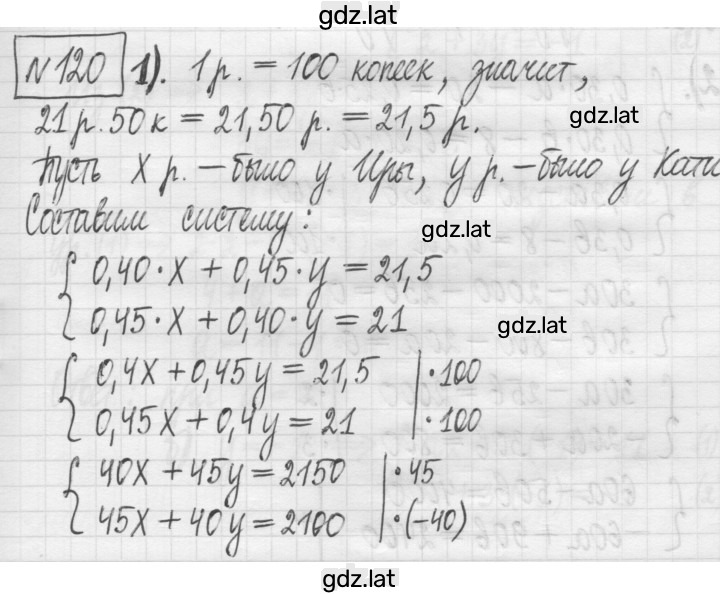 gdz.lat
№120 1). 1 р. = 100 копеек, значит,
21 р. 50 к = 21,50 р. = 21,5 р.
gdz.lat
Пусть X р. – было у Иры, у р. – было у Кати
Составим систему:
gdz.lat
0,40·X + 0,45·y = 21,5
0,45·X + 0,40·y = 21
gdz.lat
0,4X + 0,45y = 21,5 |·100
0,45X + 0,4y = 21 |·100
40X + 45y = 2150 |·45
45X + 40y = 2100 |·(-40)
gdz.lat